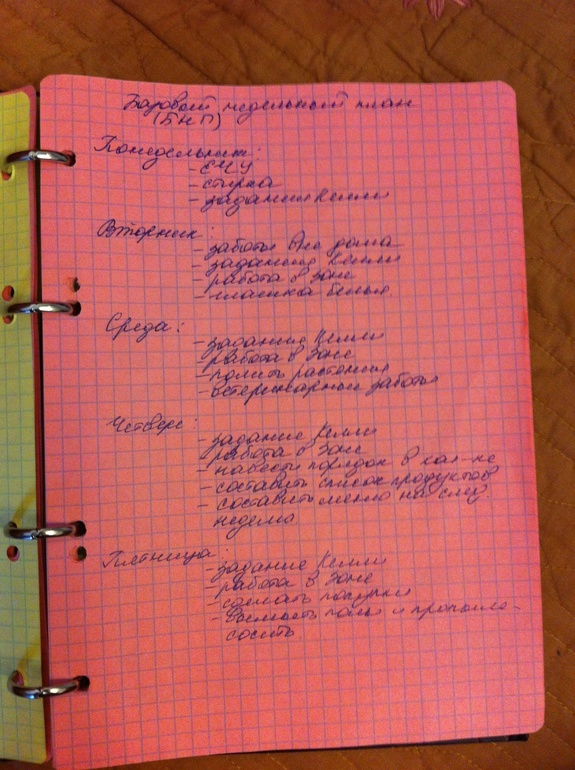 Базовый недельный план
(БНП)
Понедельник:
- ЕЧУ
- стирка
- задания Келли
Вторник:
- заботы вне дома
- задание Келли
- работа в зоне
- глажка белья
Среда:
- задание Келли
- работа в зоне
- полить растения
- ветеринарные заботы
Четверг:
- задание Келли
- работа в зоне
- навести порядок в
- составить список продуктов
- составить меню на след.
неделю
Пятница:
- задание Келли
- работа в зоне
- сделать покупки
- вымыть полы и пропыле-
сосить